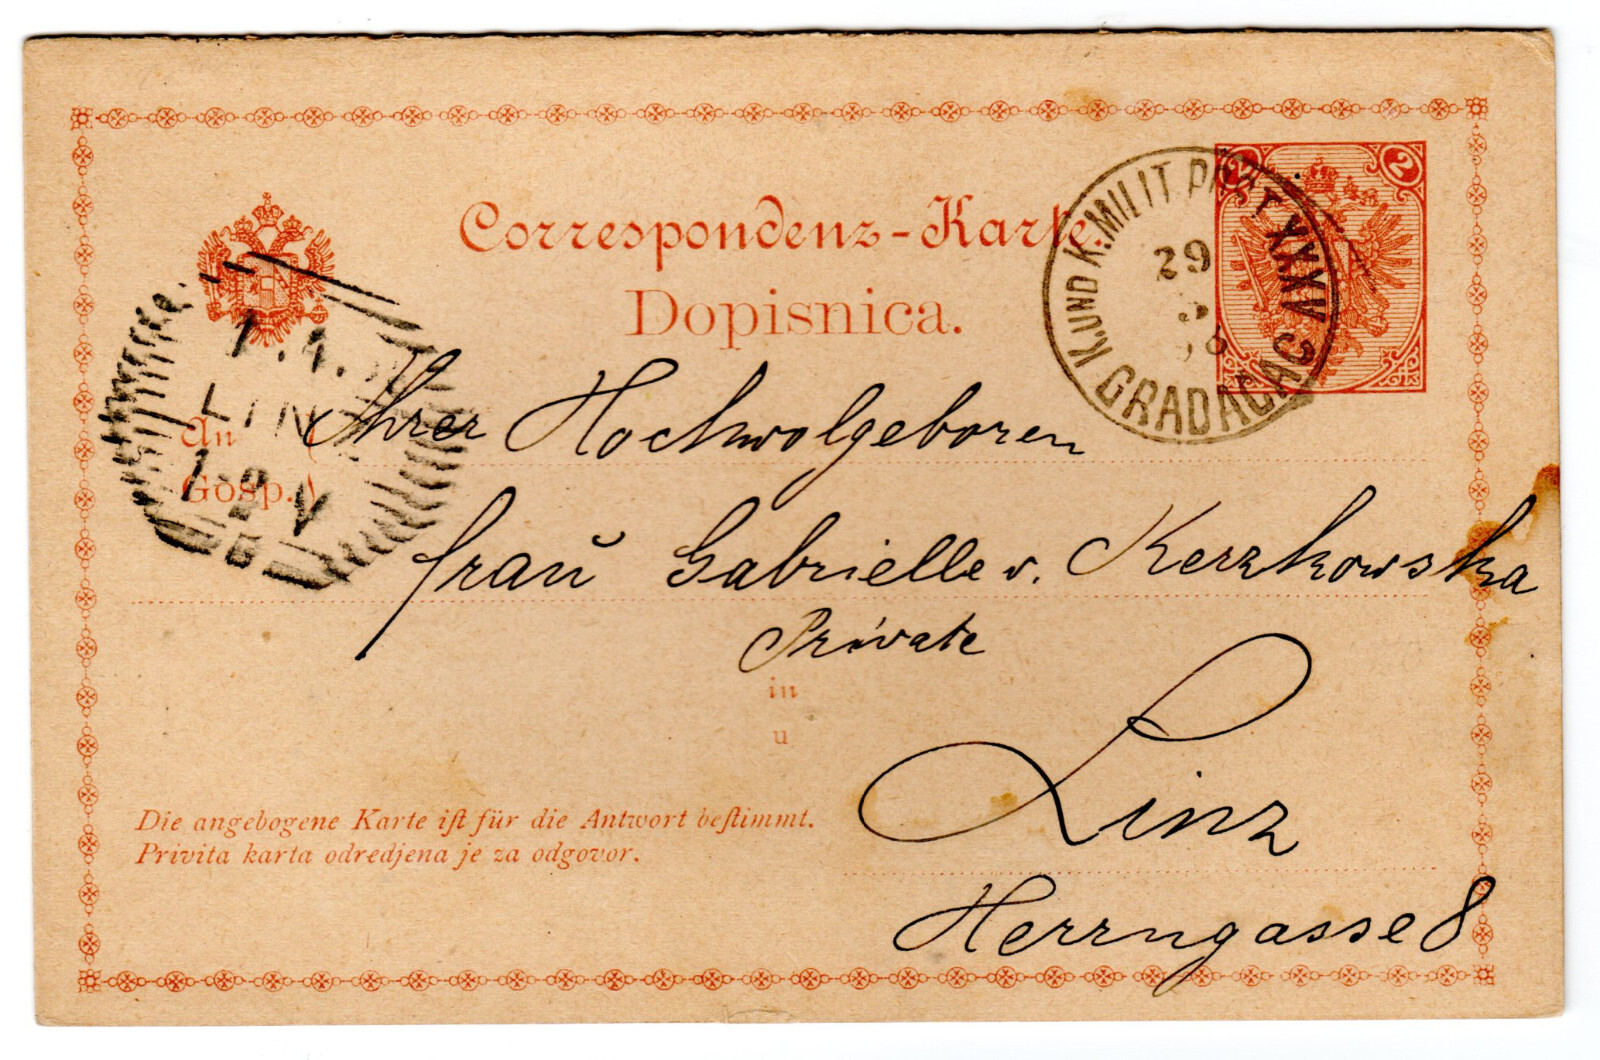 Correspondenz-Karte.
Dopisnica.
2 2
K. UND K. MILIT. POST XXXV
29
3
GRADAČAC
1.4.
LINZ
1-9 V
6
An
Gosp.
Ihrer Hochwolgeboren
frau Gabrielle v. Kerzkowska
Private
in
u
Linz
Herrngasse 8
Die angebogene Karte ist für die Antwort bestimmt.
Privita karta odredjena je za odgovor.